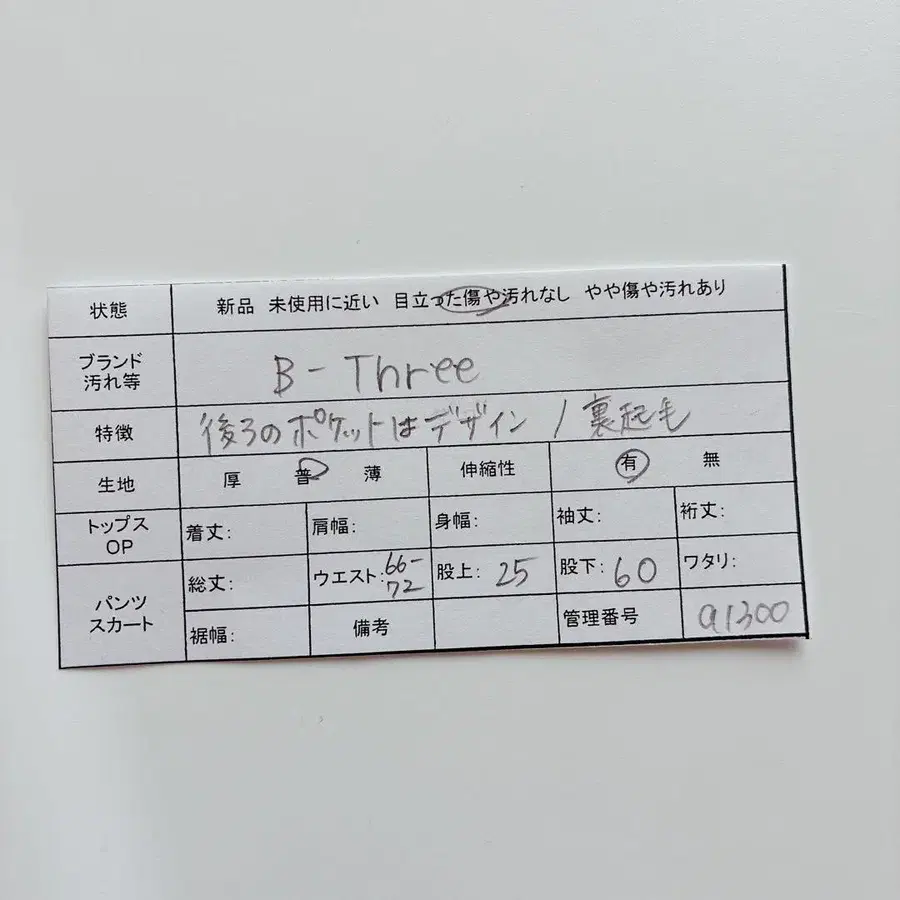 状態 新品 未使用に近い 目立った傷や汚れなし やや傷や汚れあり
ブランド 汚れ等 B-Three
特徴 後ろのポケットはデザイン / 裏起毛
生地 厚 普 薄 伸縮性 有 無
トップス OP 着丈: 肩幅: 身幅: 袖丈: 裄丈:
パンツ スカート 総丈: ウエスト:66-72 股上: 25 股下: 60 ワタリ:
裾幅: 備考 管理番号 a1300